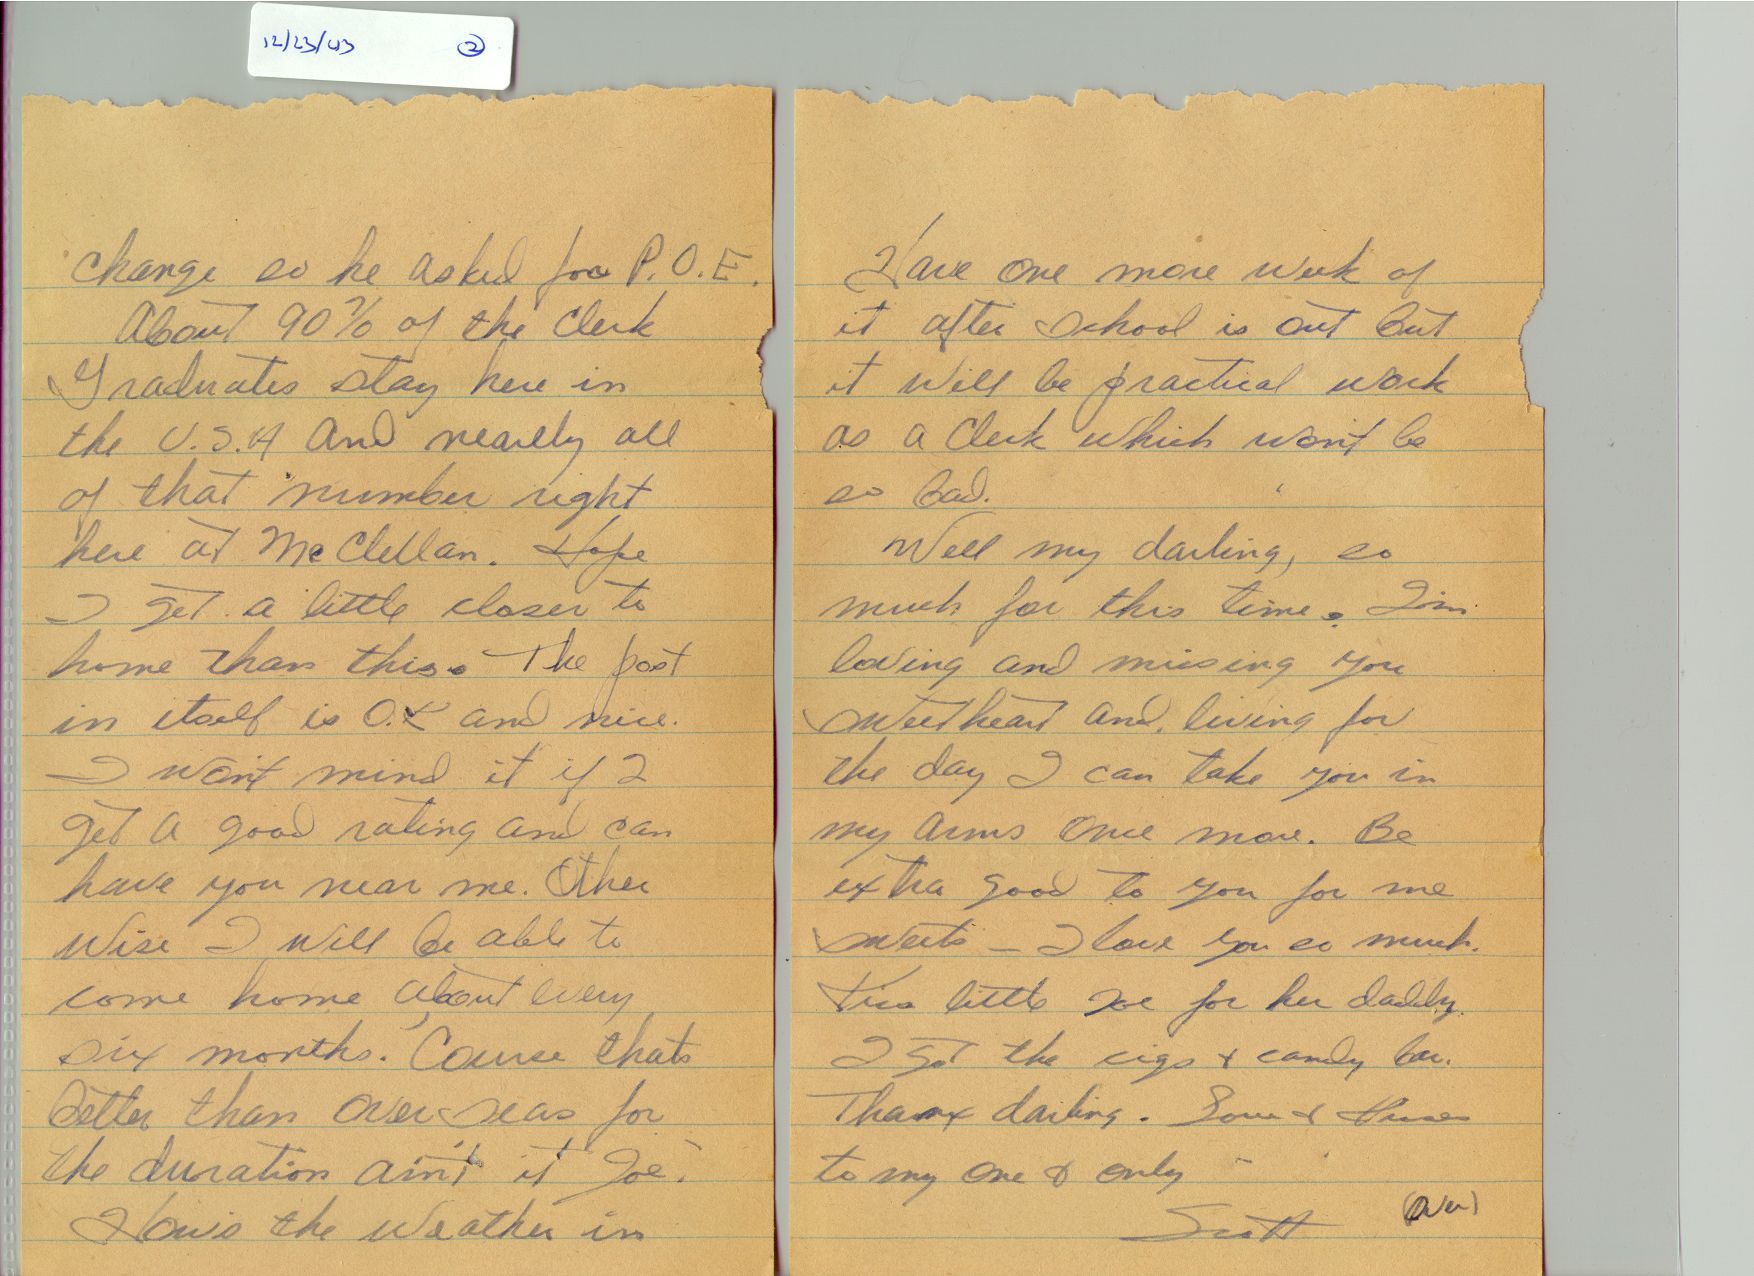 12/23/43 2
change so he asked for P.O.E.
About 90% of the Clerk
Graduates stay here in
the U.S.A and nearly all
of that number right
here at McClellan. Hope
I get a little closer to
home than this. The post
in itself is O.K and nice.
I won't mind it if I
get a good rating and can
have you near me. Other
wise I will be able to
come home about every
six months. Course thats
better than over seas for
the duration ain't it Zoe.
How's the weather in
Have one more week of
it after school is out but
it will be practical work
as a Clerk which won't be
so bad.
Well my darling, so
much for this time. I'm
loving and missing you
sweetheart and living for
the day I can take you in
my arms once more. Be
extra good to you for me
sweets - I love you so much.
Kiss little Zoe for her daddy.
I got the cigs + candy bar.
Thanx darling. Love + Kisses
to my one & only -
Scott
(Over)